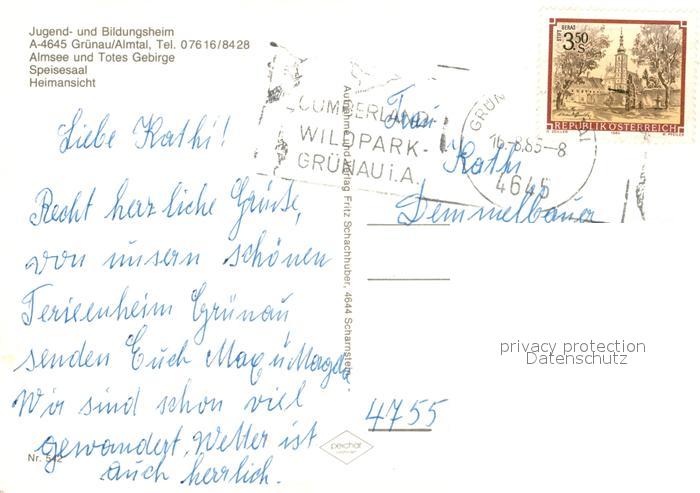 Jugend- und Bildungsheim
A-4645 Grünau/Almtal, Tel. 07616/8428
Almsee und Totes Gebirge
Speisesaal
Heimansicht
Liebe Kathi!
Recht herzliche Grüße,
von unsern schönen
Ferienheim Grünau
senden Euch Max u Magda
Wir sind schon viel
gewandert, Wetter ist
auch herrlich.
Nr. 542
Aufnahme und Verlag Fritz Schachhuber, 4644 Scharnstein
CUMBERLAND
WILDPARK-
GRÜNAU i.A.
GRÜN
16.-8.85-8
4645
STIFT GERAS
3.50
S
REPUBLIK ÖSTERREICH
Frau
Kathi
Demmelbauer
privacy protection
Datenschutz
4755